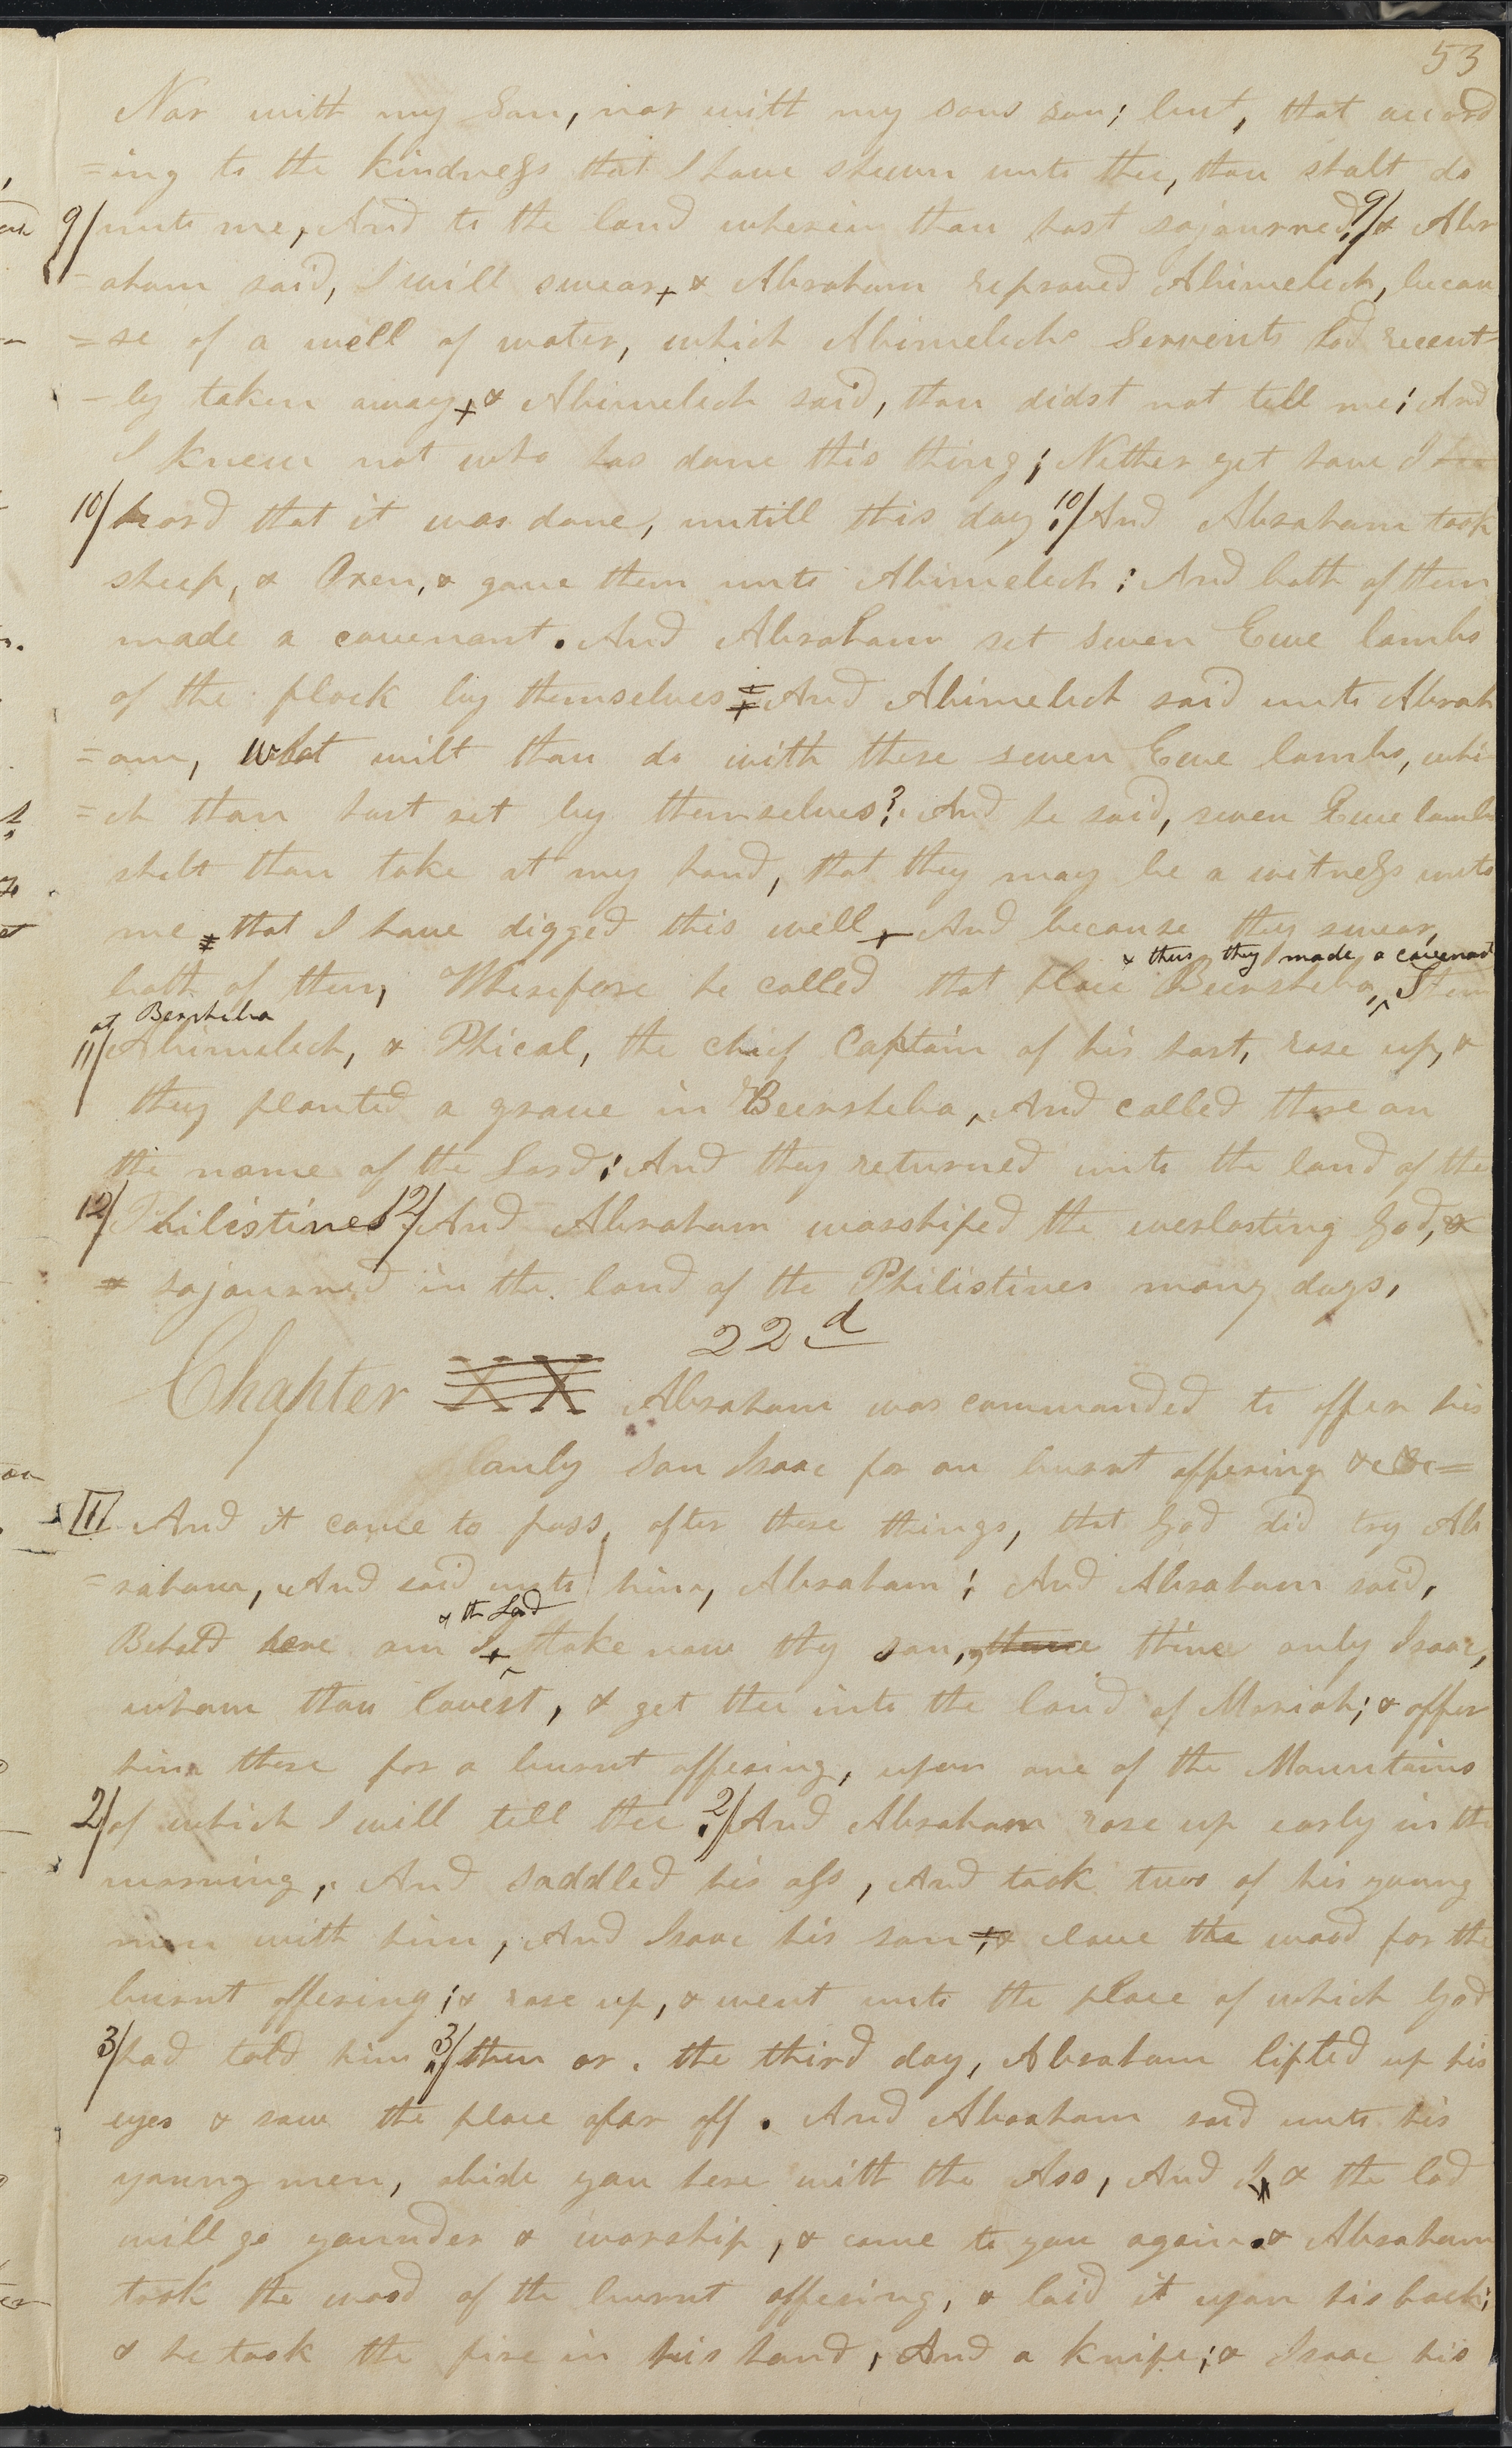 53
Nor with my Son, nor with my sons son; but, that accord
=ing to the kindness that I have shewn unto thee, thou shalt do
9/ unto me, And to the land wherein thou hast sojourned. 9/ & Abr
=aham said, I will swear + & Abraham reproved Abimelech, becau
=se of a well of water, which Abimelechs Servents had recent-
-ly taken away + & Abimelech said, thou didst not tell me; And
I knew not who has done this thing; Nether yet have I
10/ heard that it was done, untill this day. 10/ And Abraham took
sheep, & Oxen, & gave them unto Abimelech; And both of them
made a covenant. And Abraham set seven Ewe lambs
of the flock by themselves And Abimelech said unto Abrah
=am, what wilt thou do with these seven Ewe lambs, whi
=ch thou hast set by themselves? And he said, seven Ewe lambs
shalt thou take at my hand, that they may be a witness unto
me that I have digged this well + And because they swear,
& thus they made a covenant
both of them, Wherefore he called that place Beersheba, ^ Then
at Bersheba
11/ Abimelech, & Phical, the chief Captain of his host, rose up, &
they planted a grove in Beersheba, And called there on
the name of the Lord; And they returned unto the land of the
12/ Philistines 12/ And Abraham worshiped the everlasting God, &
sojourned in the land of the Philistines many days,
22d
Chapter XX Abraham was commanded to offer his
only son Isaac for an burnt offering &c &c=
II And it came to pass, after these things, that God did try Ab
=raham, And said unto him, Abraham; And Abraham said,
& the Lord
Behold here am I + ^ take now thy son, thine thine only Isaac,
whom thou lovest, & get thee into the land of Moriah; & offer
him there for a burnt offering, upon one of the Mountains
2/ of which I will tell thee. 2/ And Abraham rose up early in the
morning, And saddled his ass, And took two of his young
men with him, And Isaac his son & clave the wood for the
burnt offering; & rose up, & went unto the place of which God
3/ had told him 3/ then on the third day, Abraham lifted up his
eyes & saw the place afar off. And Abraham said unto his
young men, abide you here with the Ass, And I & the lad
will go younder & worship, & come to you again. & Abraham
took the wood of the burnt offering, & laid it upon his back;
& he took the fire in his hand, And a knife; & Isaac his